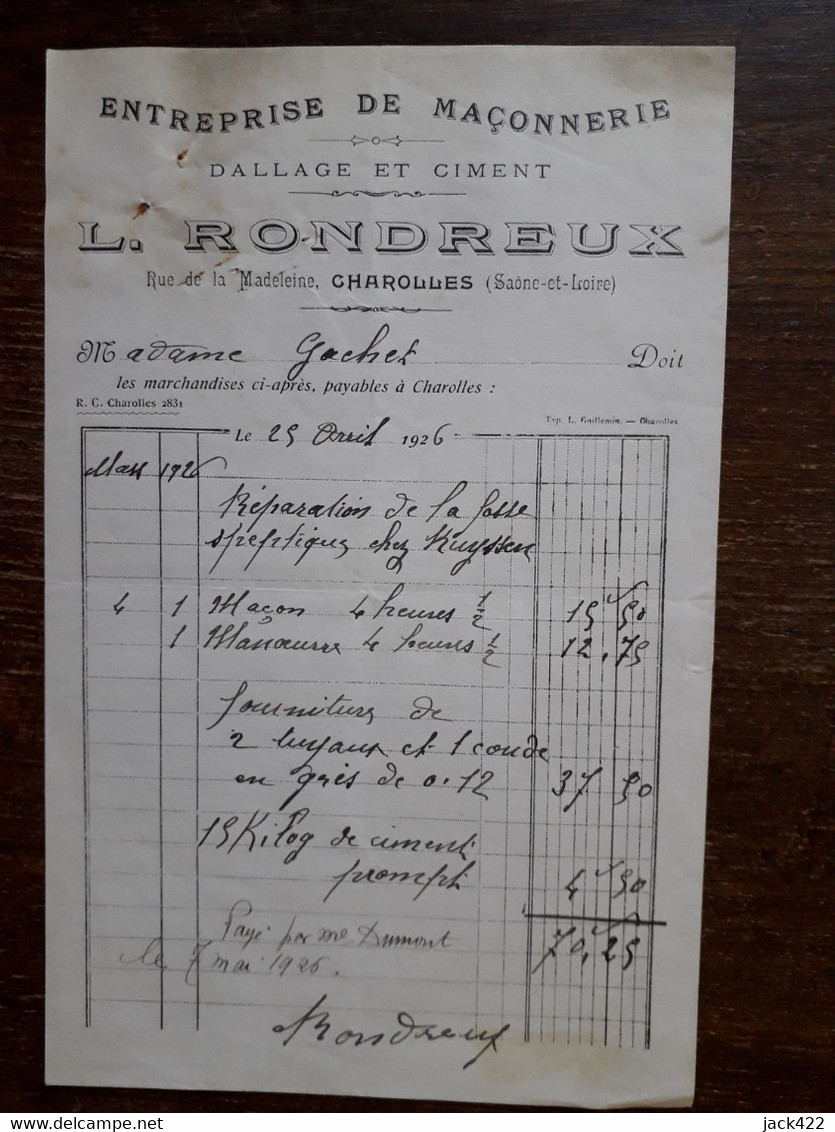 ENTREPRISE DE MAÇONNERIE
DALLAGE ET CIMENT
L. RONDREUX
Rue de la Madeleine, CHAROLLES (Saône-et-Loire)
Madame Gachet Doit
les marchandises ci-après, payables à Charolles :
R. C. Charolles 2831
Typ. L. Guillemin. — Charolles
Le 25 Avril 1926
Mars 1926
Réparation de la fosse
speptique chez Kuyssen
4 1 Maçon 4 heures 1/2 15,50
1 Manœuvre 4 heures 1/2 12,75
fourniture de
2 tuyaux et 1 coude
en grès de 0.12 37 50
15 Kilog de ciment
prompt 4,50
70,25
Payé par me Dumont
le 7 mai 1926.
Rondreux
delcampe.net
jack422